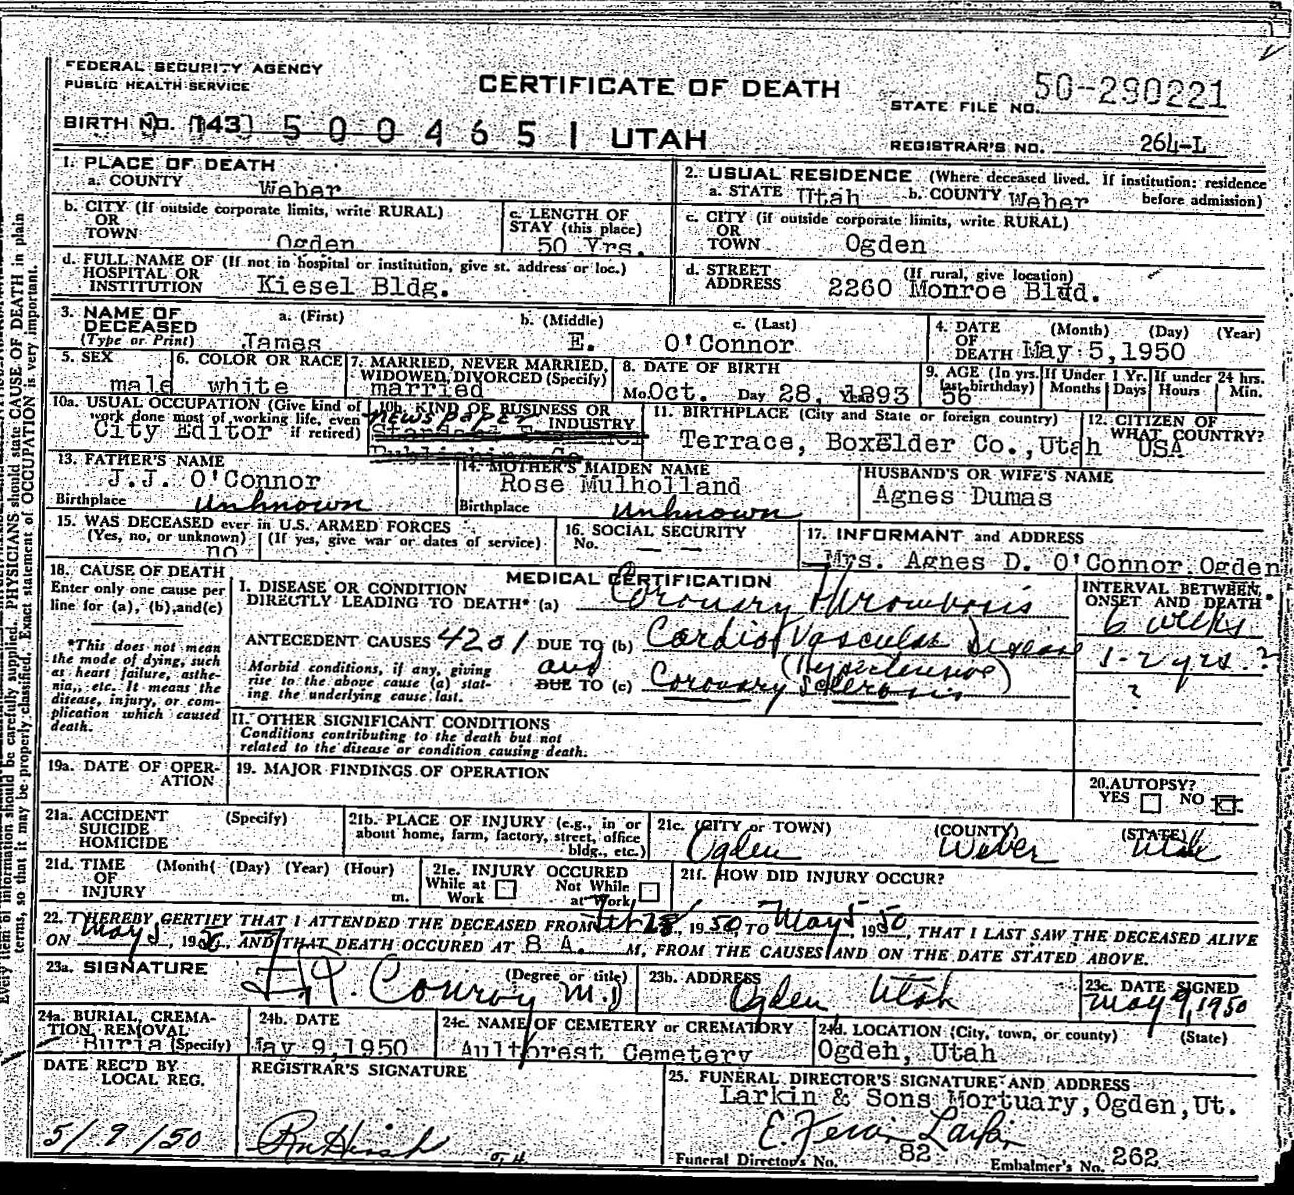 FEDERAL SECURITY AGENCY
PUBLIC HEALTH SERVICE
CERTIFICATE OF DEATH
STATE FILE NO. 50-290221
BIRTH NO. 143 5004651 UTAH
REGISTRAR'S NO. 264-L
1. PLACE OF DEATH
a. COUNTY Weber
2. USUAL RESIDENCE (Where deceased lived. If institution: residence before admission)
a. STATE Utah b. COUNTY Weber
b. CITY (If outside corporate limits, write RURAL)
OR
TOWN Ogden
c. LENGTH OF
STAY (this place)
50 Yrs.
c. CITY (if outside corporate limits, write RURAL)
OR
TOWN Ogden
d. FULL NAME OF (If not in hospital or institution, give st. address or loc.)
HOSPITAL OR
INSTITUTION Kiesel Bldg.
d. STREET (If rural, give location)
ADDRESS 2260 Monroe Bldd.
3. NAME OF
DECEASED
(Type or Print)
a. (First) b. (Middle) c. (Last)
James E. O'Connor
4. DATE (Month) (Day) (Year)
OF
DEATH May 5, 1950
5. SEX
male
6. COLOR OR RACE
white
7. MARRIED, NEVER MARRIED,
WIDOWED, DIVORCED (Specify)
married
8. DATE OF BIRTH
Mo. Oct. Day 28, 1893
9. AGE (In yrs. last birthday) 56
If Under 1 Yr. Months Days
If under 24 hrs. Hours Min.
10a. USUAL OCCUPATION (Give kind of
work done most of working life, even
if retired)
City Editor
10b. KIND OF BUSINESS OR
INDUSTRY
Newspaper
Publishing Co
11. BIRTHPLACE (City and State or foreign country)
Terrace, BoxElder Co., Utah
12. CITIZEN OF
WHAT COUNTRY?
USA
13. FATHER'S NAME
J.J. O'Connor
Birthplace Unknown
14. MOTHER'S MAIDEN NAME
Rose Mulholland
Birthplace Unknown
HUSBAND'S OR WIFE'S NAME
Agnes Dumas
15. WAS DECEASED ever in U.S. ARMED FORCES
(Yes, no, or unknown) (If yes, give war or dates of service)
no
16. SOCIAL SECURITY
No. — —
17. INFORMANT and ADDRESS
Mrs. Agnes D. O'Connor Ogden
18. CAUSE OF DEATH
Enter only one cause per
line for (a), (b), and (c)
*This does not mean
the mode of dying, such
as heart failure, asthe-
nia, etc. It means the
disease, injury, or com-
plication which caused
death.
MEDICAL CERTIFICATION
I. DISEASE OR CONDITION
DIRECTLY LEADING TO DEATH* (a) Coronary Thrombosis
INTERVAL BETWEEN
ONSET AND DEATH
6 weeks
ANTECEDENT CAUSES 4201 DUE TO (b) Cardio Vascular Disease
1-2 yrs.?
Morbid conditions, if any, giving
rise to the above cause (a) stat-
ing the underlying cause last.
and (Hypertensive)
DUE TO (c) Coronary Sclerosis
?
II. OTHER SIGNIFICANT CONDITIONS
Conditions contributing to the death but not
related to the disease or condition causing death.
19a. DATE OF OPER-
ATION
19. MAJOR FINDINGS OF OPERATION
20. AUTOPSY?
YES NO
21a. ACCIDENT (Specify)
SUICIDE
HOMICIDE
21b. PLACE OF INJURY (e.g., in or
about home, farm, factory, street, office
bldg., etc.)
21c. (CITY or TOWN) (COUNTY) (STATE)
Ogden Weber Utah
21d. TIME (Month) (Day) (Year) (Hour)
OF
INJURY m.
21e. INJURY OCCURED
While at Work Not While at Work
21f. HOW DID INJURY OCCUR?
22. I HEREBY CERTIFY THAT I ATTENDED THE DECEASED FROM Feb 28, 1950 TO May 5 1950, THAT I LAST SAW THE DECEASED ALIVE
ON May 5, 1950, AND THAT DEATH OCCURED AT 8 A. M, FROM THE CAUSES AND ON THE DATE STATED ABOVE.
23a. SIGNATURE (Degree or title)
Conroy M.D
23b. ADDRESS
Ogden Utah
23c. DATE SIGNED
May 9, 1950
24a. BURIAL, CREMA-
TION REMOVAL
(Specify)
Buria
24b. DATE
May 9, 1950
24c. NAME OF CEMETERY or CREMATORY
Aultorest Cemetery
24d. LOCATION (City, town, or county) (State)
Ogden, Utah
DATE REC'D BY
LOCAL REG.
5/9/50
REGISTRAR'S SIGNATURE
25. FUNERAL DIRECTOR'S SIGNATURE AND ADDRESS
Larkin & Sons Mortuary, Ogden, Ut.
Larkin
Funeral Director's No. 82 Embalmer's No. 262
Every item of information should be carefully supplied. PHYSICIANS should state CAUSE OF DEATH in plain
terms, so that it may be properly classified. Exact statement of OCCUPATION is very important.